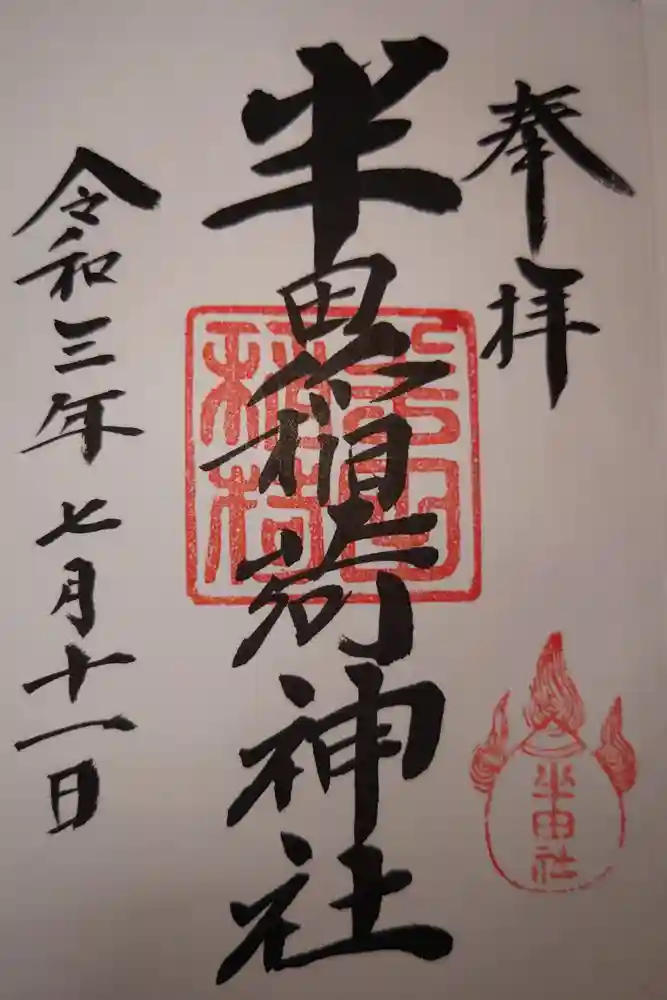 奉拝
半田稲荷神社
半田
稲荷
半田社
令和三年七月十一日